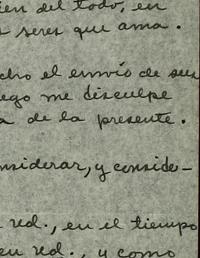 ien del todo, en
seres que ama.
cho el envío de sus
ego me disculpe
a de la presente.
nsiderar, y conside-
ud., en el tiempo
en ud., y como